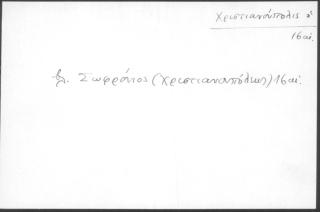 Χριστιανόπολις ἡ
16 αἰ.
βλ. Σωφρόνιος (Χριστιανοπόλεως) 16 αἰ.